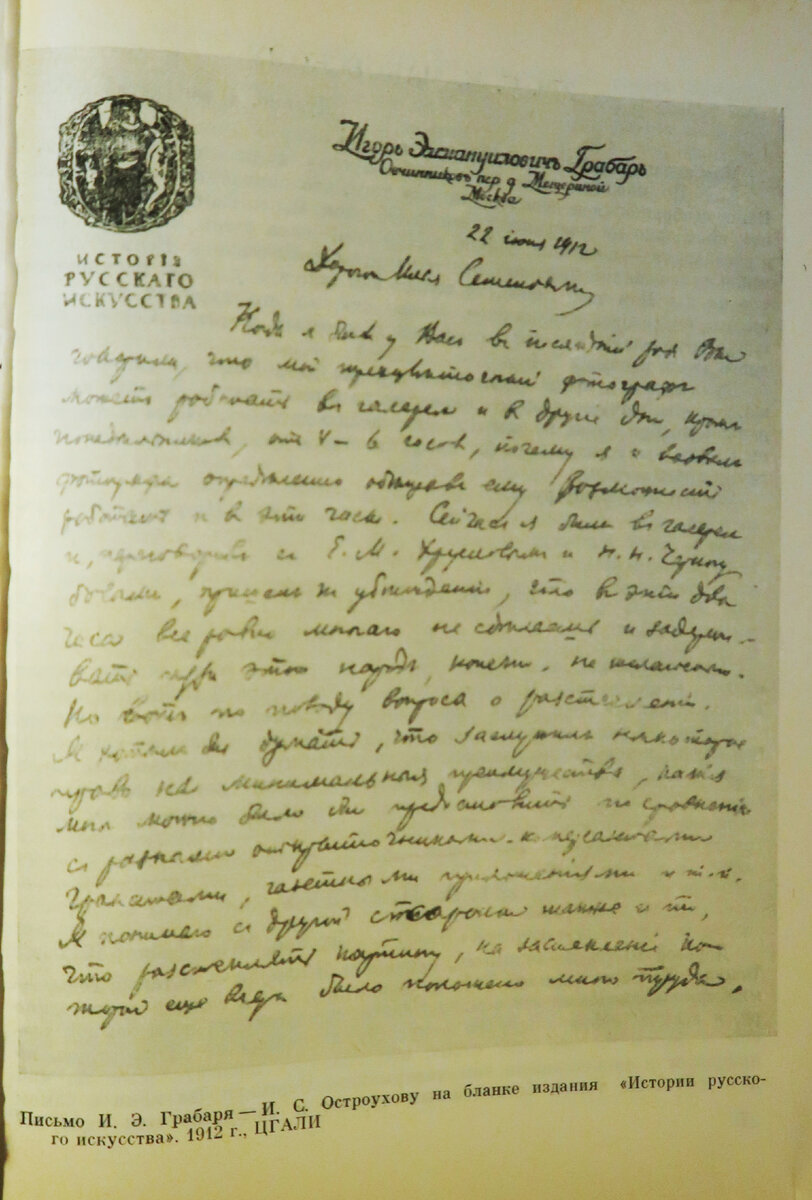 ИСТОРІЯ
РУССКАГО
ИСКУССТВА
Игорь Эммануиловичъ Грабарь
Овчинниковъ пер. д. Мещериной
Москва
22 июня 1912
Дорогой Илья Семеновичъ
Когда я былъ у Васъ въ последній разъ Вы
говорили, что мой фотографъ
можетъ работать въ галереѣ и въ другіе дни, кромѣ
понедѣльниковъ, отъ 4 – 6 часовъ, почему я и
фотографа опредѣленно ему возможность
работать и в эти часы. Сейчасъ я былъ въ галереѣ
и, переговоривъ съ Е. М. Хрусловымъ и Н. Н. Черно
бовымъ, пришелъ къ убѣжденію, что въ эти два
часа все равно многаго не сдѣлаешь и
ради этого народъ, конечно, не
Но вотъ по поводу вопроса о
Я хотѣлъ бы думать, что заслужилъ некоторое
право на минимальныя преимущества, какія
мнѣ можно было бы предоставить по сравненію
съ разными открыточниками,
, газетными приложеніями и т. п.
Я понимаю съ другой стороны также и то,
что картину, на ко
торой еще было положено много труда,
Письмо И. Э. Грабаря — И. С. Остроухову на бланке издания «Истории русско-
го искусства». 1912 г., ЦГАЛИ